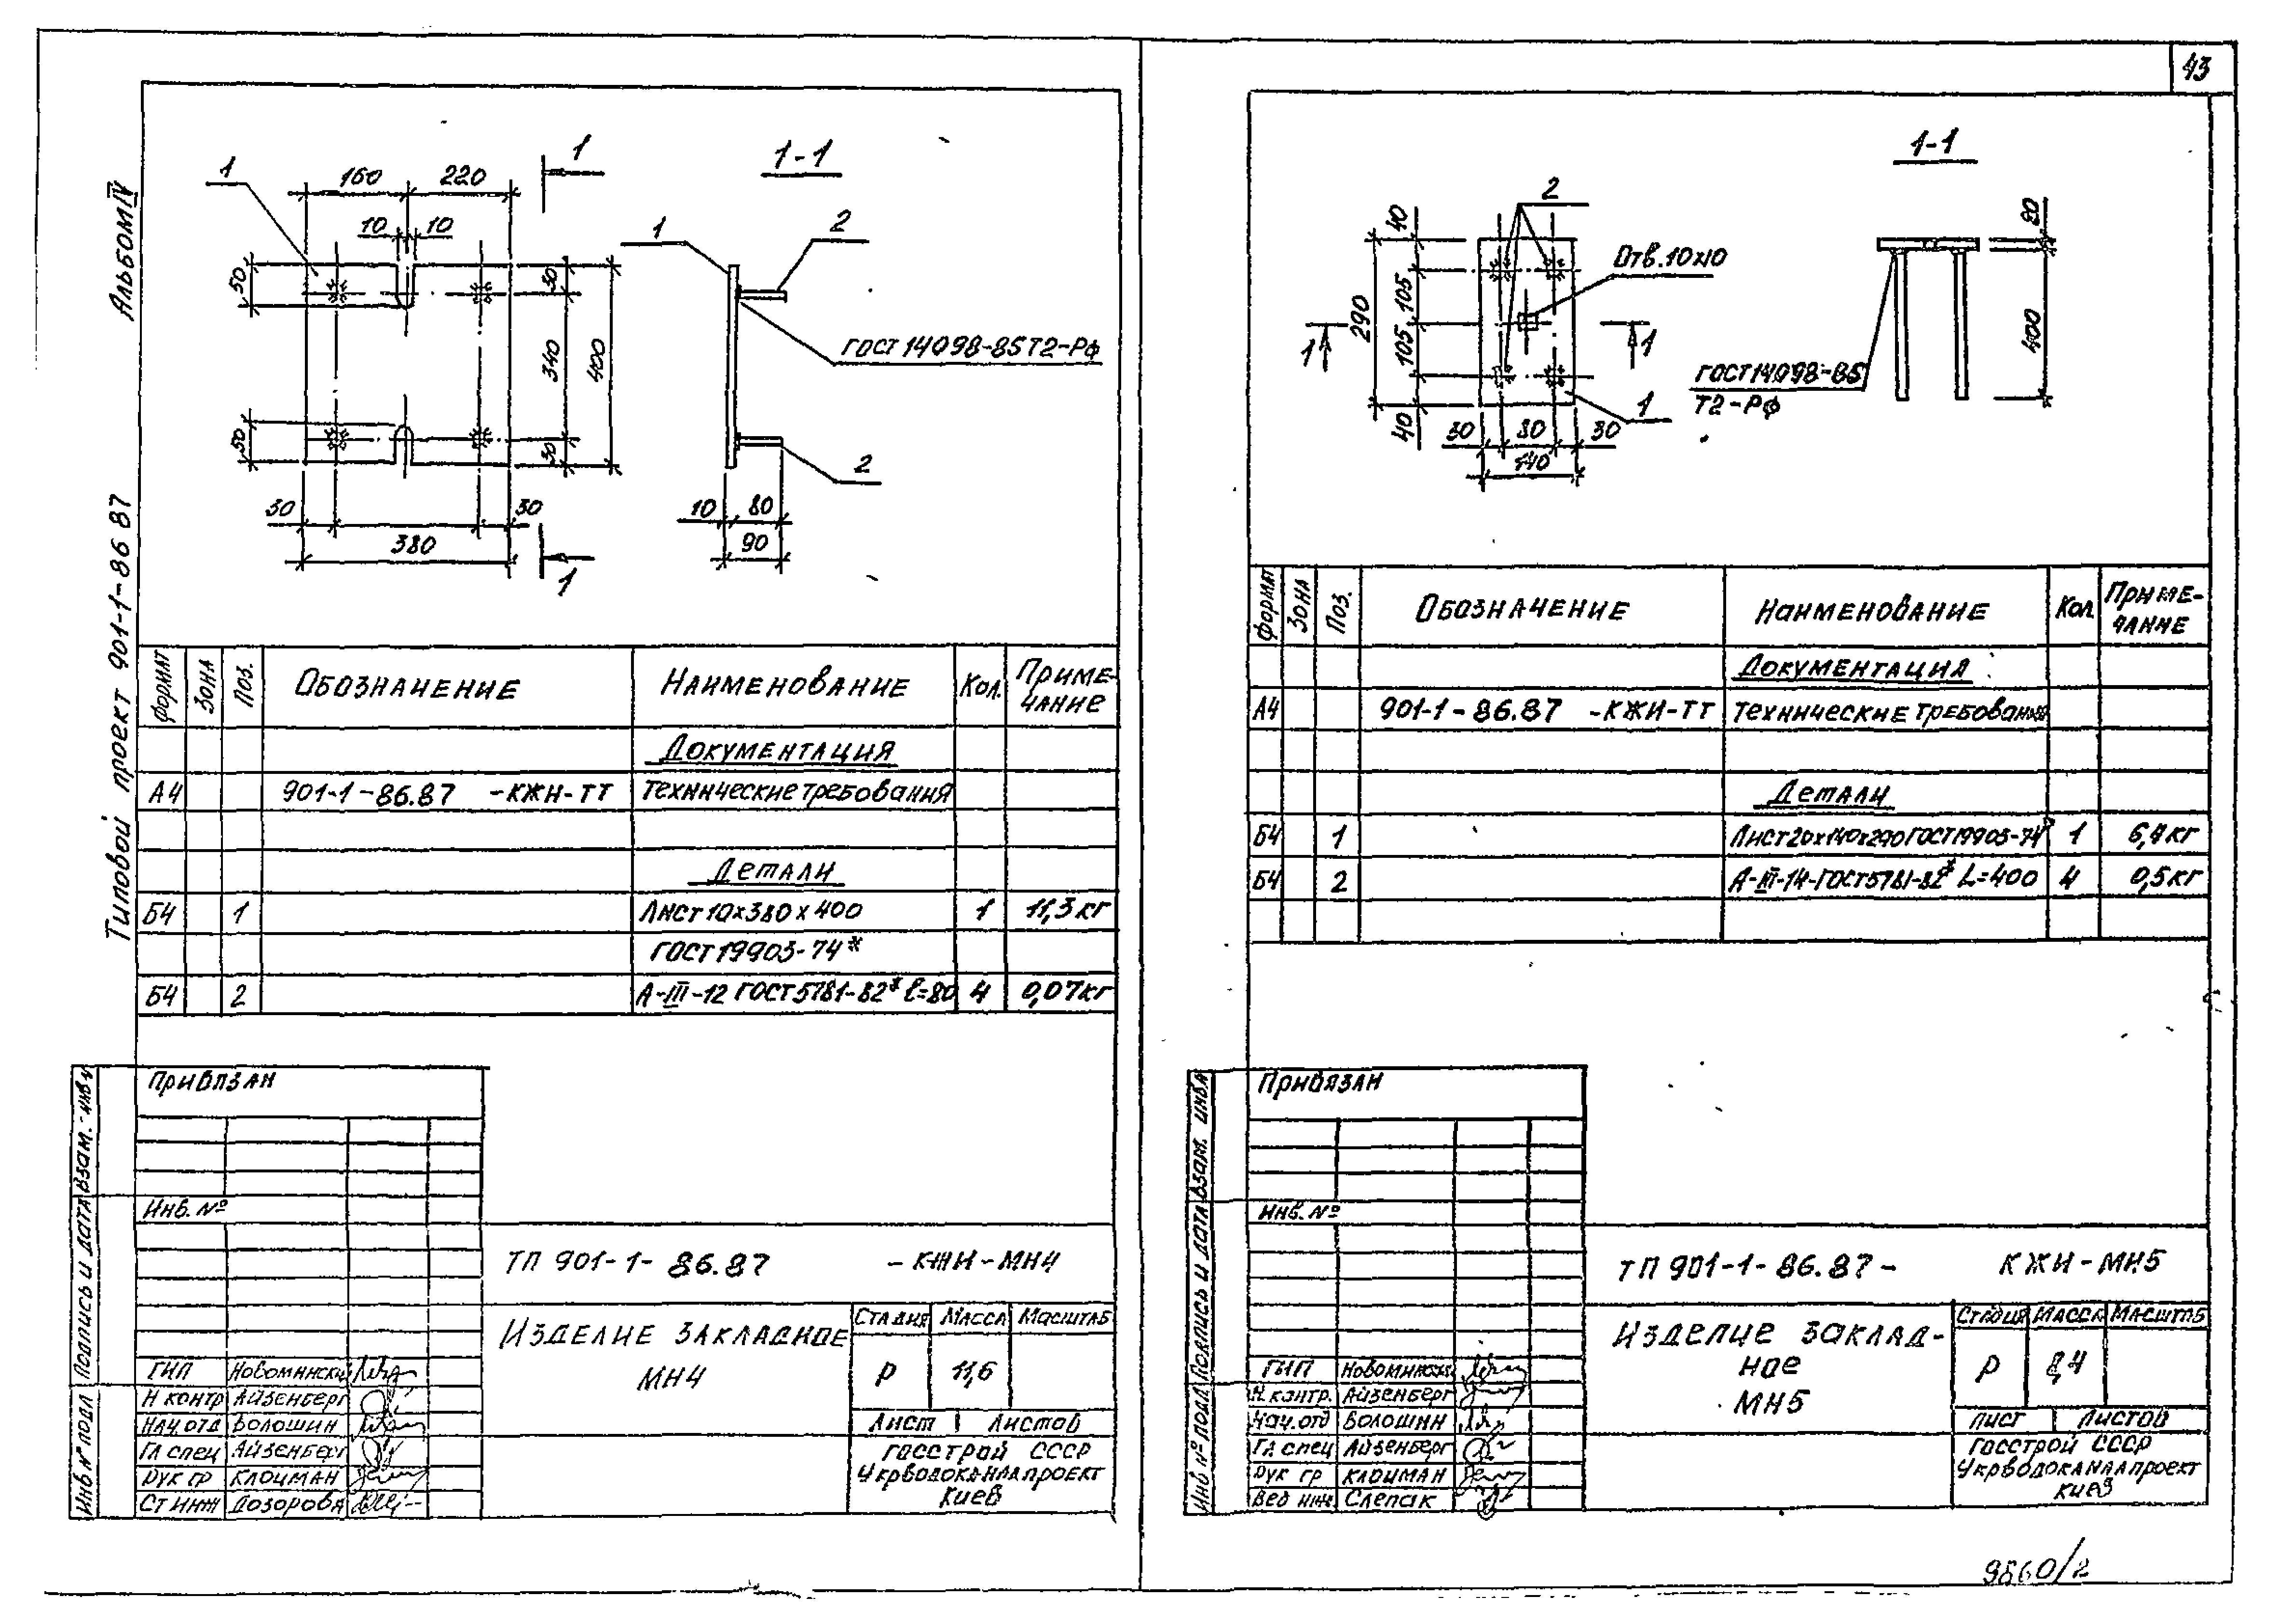 43
Альбом IV
Типовой проект 901-1-86 87
1
160
220
1
1-1
10
10
50
30
340
400
50
30
30
30
380
1
1
2
ГОСТ 14098-85 Т2-Рф
2
10
80
90
Формат
Зона
Поз.
Обозначение
Наименование
Кол.
Приме-
чание
Документация
А4
901-1-86.87 -КЖИ-ТТ
Технические требования
Детали
Б4
1
Лист 10х380х400
1
11,3кг
ГОСТ 19903-74*
Б4
2
А-III-12 ГОСТ 5781-82* ℓ=80
4
0,07кг
Привязан
Инв. №
ТП 901-1-86.87 -КЖИ-МН4
Изделие закладное
МН4
Стадия
Масса
Масштаб
Р
11,6
Лист
Листов
Госстрой СССР
Укрводоканалпроект
Киев
ГИП
Новомински
Н контр
Айзенберг
Нач. отд
Волошин
Гл спец
Айзенберг
Рук гр
Клоцман
Ст инж
Дозорова
Инв № подл
Подпись и дата
Взам. инв
1-1
2
40
105
105
40
290
Отв. 10х10
1
1
1
30
80
30
140
20
400
ГОСТ 14098-85
Т2-Рф
Формат
Зона
Поз.
Обозначение
Наименование
Кол.
Приме-
чание
Документация
А4
901-1-86.87 -КЖИ-ТТ
Технические требования
Детали
Б4
1
Лист 20х140х290 ГОСТ 19903-74*
1
6,4кг
Б4
2
А-III-14-ГОСТ 5781-82* L=400
4
0,5кг
Привязан
Инв. №
ТП 901-1-86.87- КЖИ-МН5
Изделие заклад-
ное
МН5
Стадия
Масса
Масштаб
Р
8,4
Лист
Листов
Госстрой СССР
Укрводоканалпроект
Киев
ГИП
Н. контр.
Айзенберг
Нач. отд
Волошин
Гл спец
Айзенберг
Рук гр
Клоцман
Вед инж
Слепак
Инв № подл
Подпись и дата
Взам. инв.
9860/2